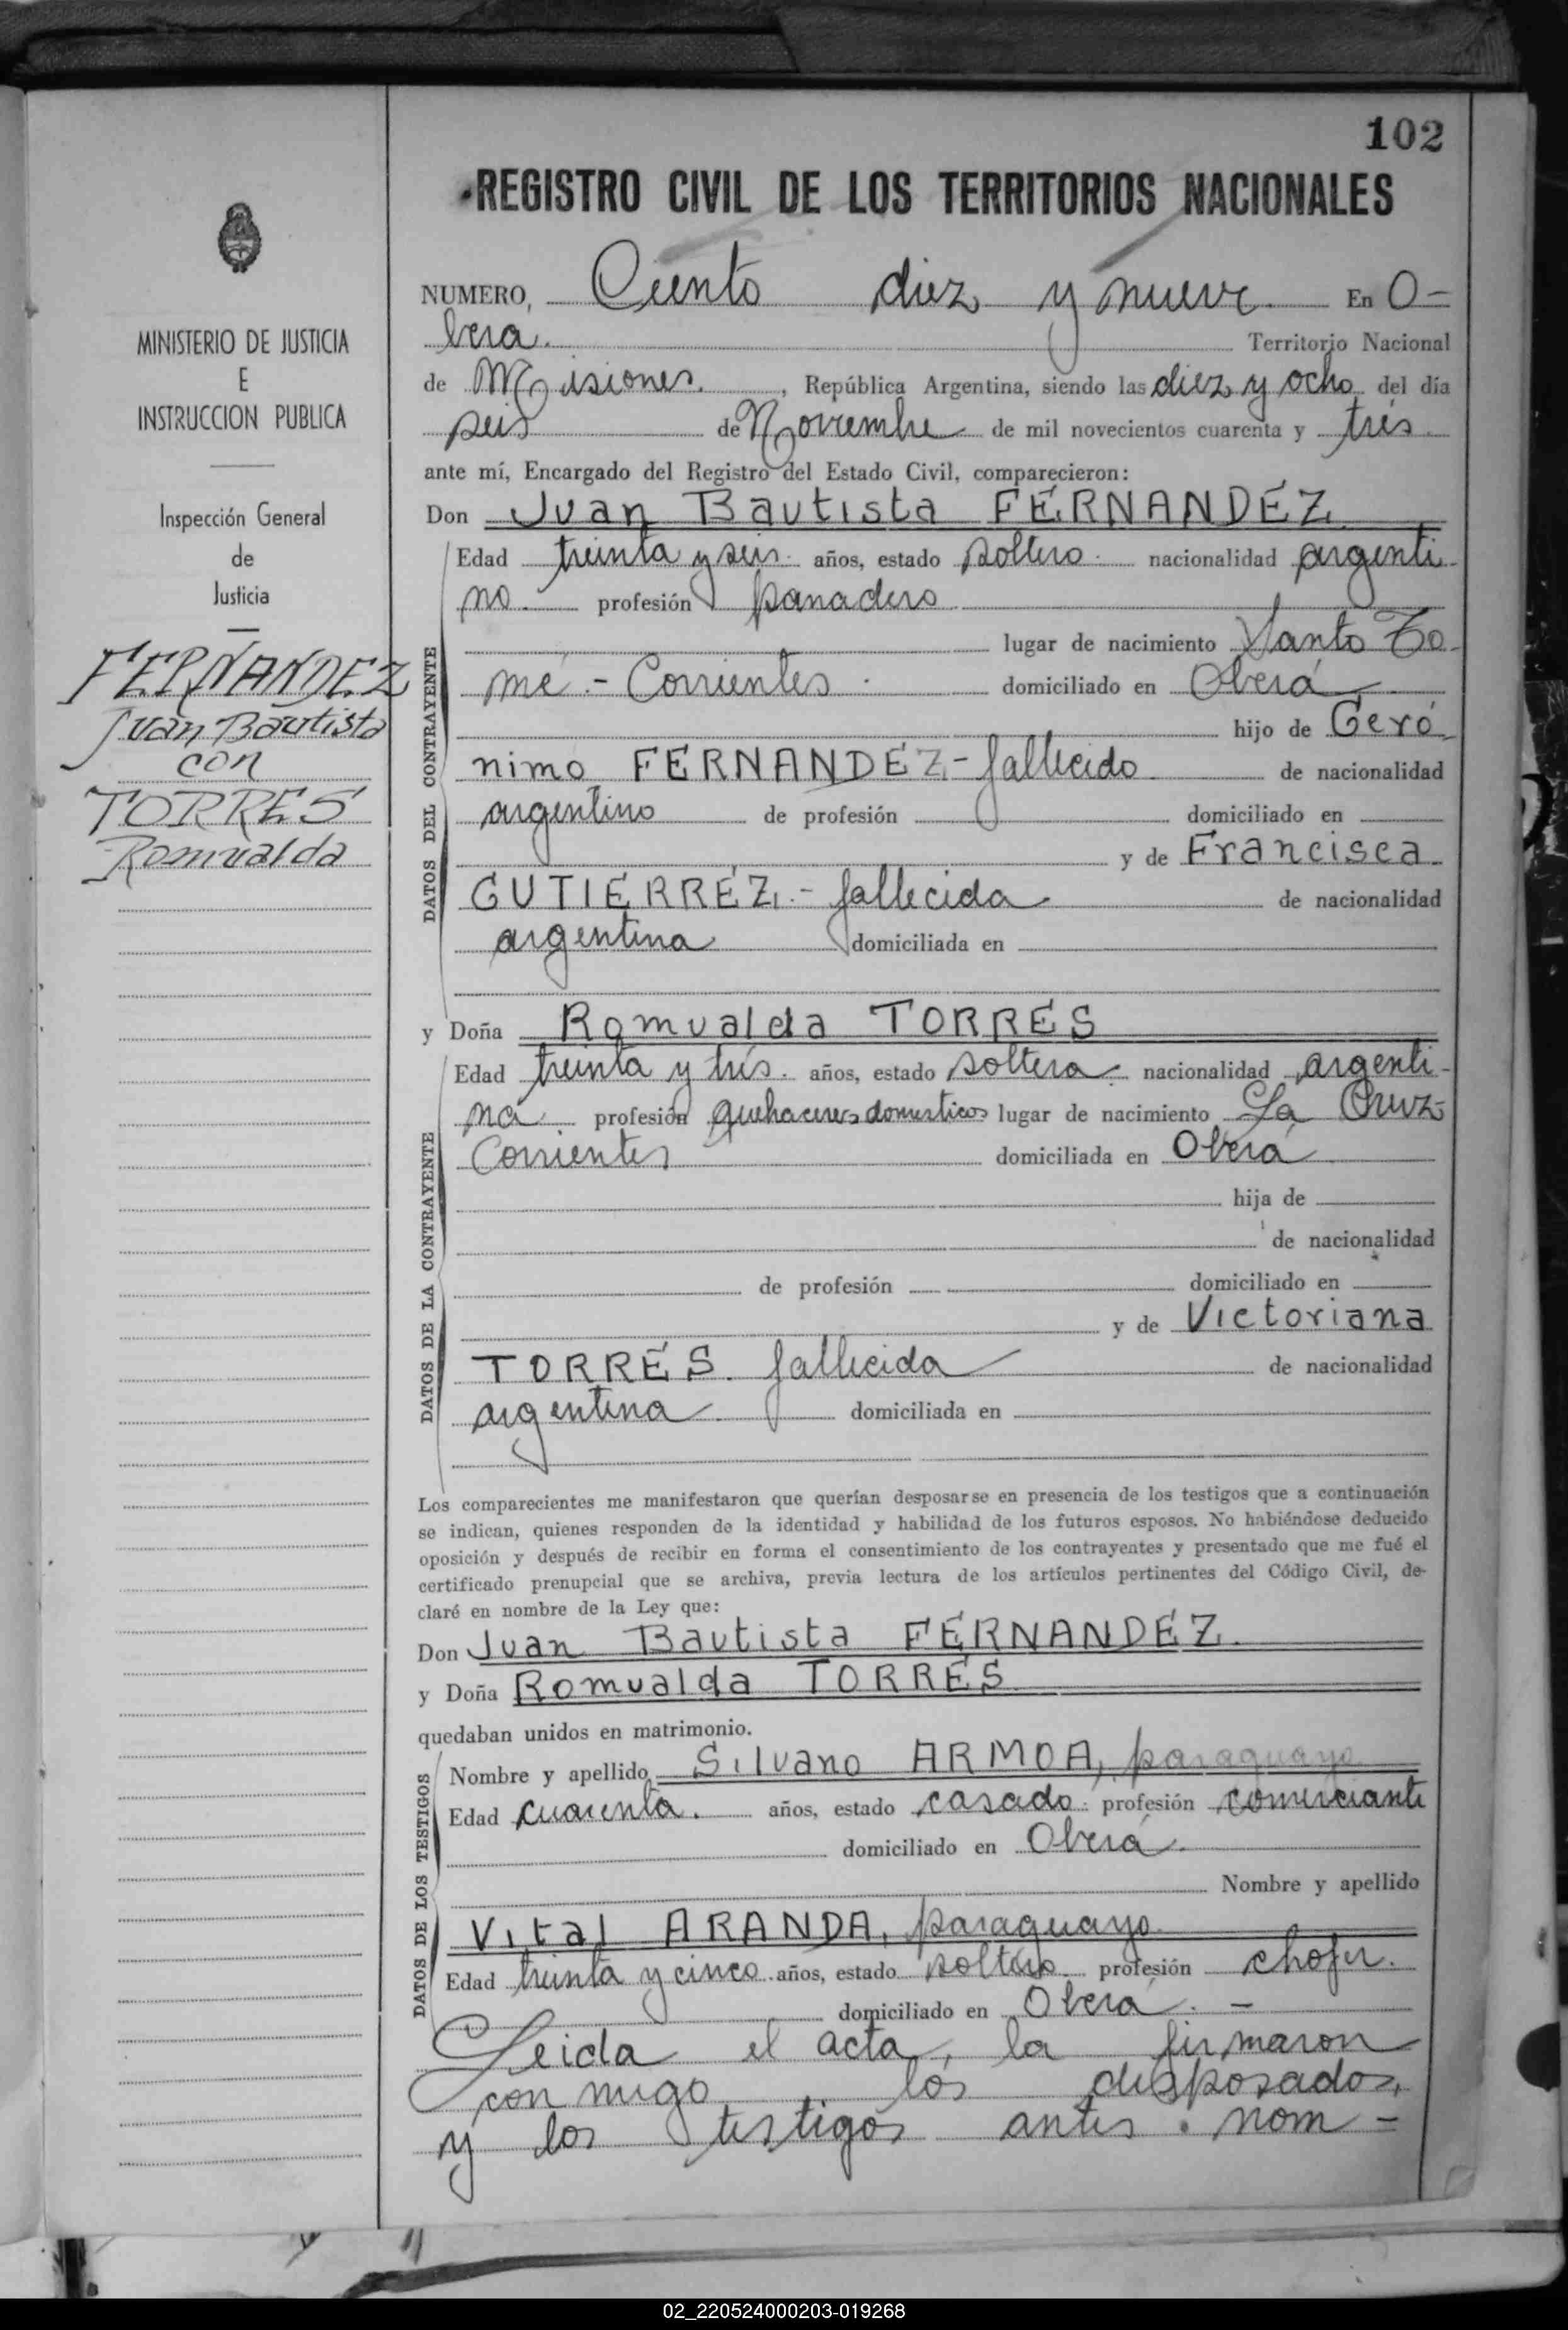 102
REGISTRO CIVIL DE LOS TERRITORIOS NACIONALES
MINISTERIO DE JUSTICIA
E
INSTRUCCION PUBLICA
Inspección General
de
Justicia
FERNANDEZ
Juan Bautista
con
TORRES
Romualda
NUMERO, Ciento diez y nueve. En O-
bera. Territorio Nacional
de Misiones. , República Argentina, siendo las diez y ocho del día
seis de Noviembre de mil novecientos cuarenta y trés
ante mí, Encargado del Registro del Estado Civil, comparecieron:
Don Juan Bautista FERNANDEZ
DATOS DEL CONTRAYENTE
Edad treinta y seis. años, estado soltero. nacionalidad argenti-
no. profesión panadero
lugar de nacimiento Santo To-
mé.- Corrientes. domiciliado en Oberá
hijo de Geró-
nimo FERNANDEZ- fallecido de nacionalidad
argentino de profesión domiciliado en
y de Francisca
GUTIERREZ.- fallecida de nacionalidad
argentina domiciliada en
y Doña Romualda TORRES
DATOS DE LA CONTRAYENTE
Edad treinta y trés. años, estado soltera nacionalidad argenti-
na profesión quehaceres domesticos lugar de nacimiento La Cruz-
Corrientes domiciliada en Oberá
hija de
de nacionalidad
de profesión domiciliado en
y de Victoriana
TORRES. fallecida de nacionalidad
argentina. domiciliada en
Los comparecientes me manifestaron que querían desposarse en presencia de los testigos que a continuación
se indican, quienes responden de la identidad y habilidad de los futuros esposos. No habiéndose deducido
oposición y después de recibir en forma el consentimiento de los contrayentes y presentado que me fué el
certificado prenupcial que se archiva, previa lectura de los artículos pertinentes del Código Civil, de-
claré en nombre de la Ley que:
Don Juan Bautista FERNANDEZ.
y Doña Romualda TORRES
quedaban unidos en matrimonio.
DATOS DE LOS TESTIGOS
Nombre y apellido Silvano ARMOA, paraguayo
Edad cuarenta. años, estado casado. profesión comerciante
domiciliado en Oberá.
Nombre y apellido
Vital ARANDA, paraguayo.
Edad treinta y cinco años, estado soltero profesión chofer.
domiciliado en Oberá. -
Leida el acta, la firmaron
con migo los desposados,
y los testigos antes nom-
02_220524000203-019268